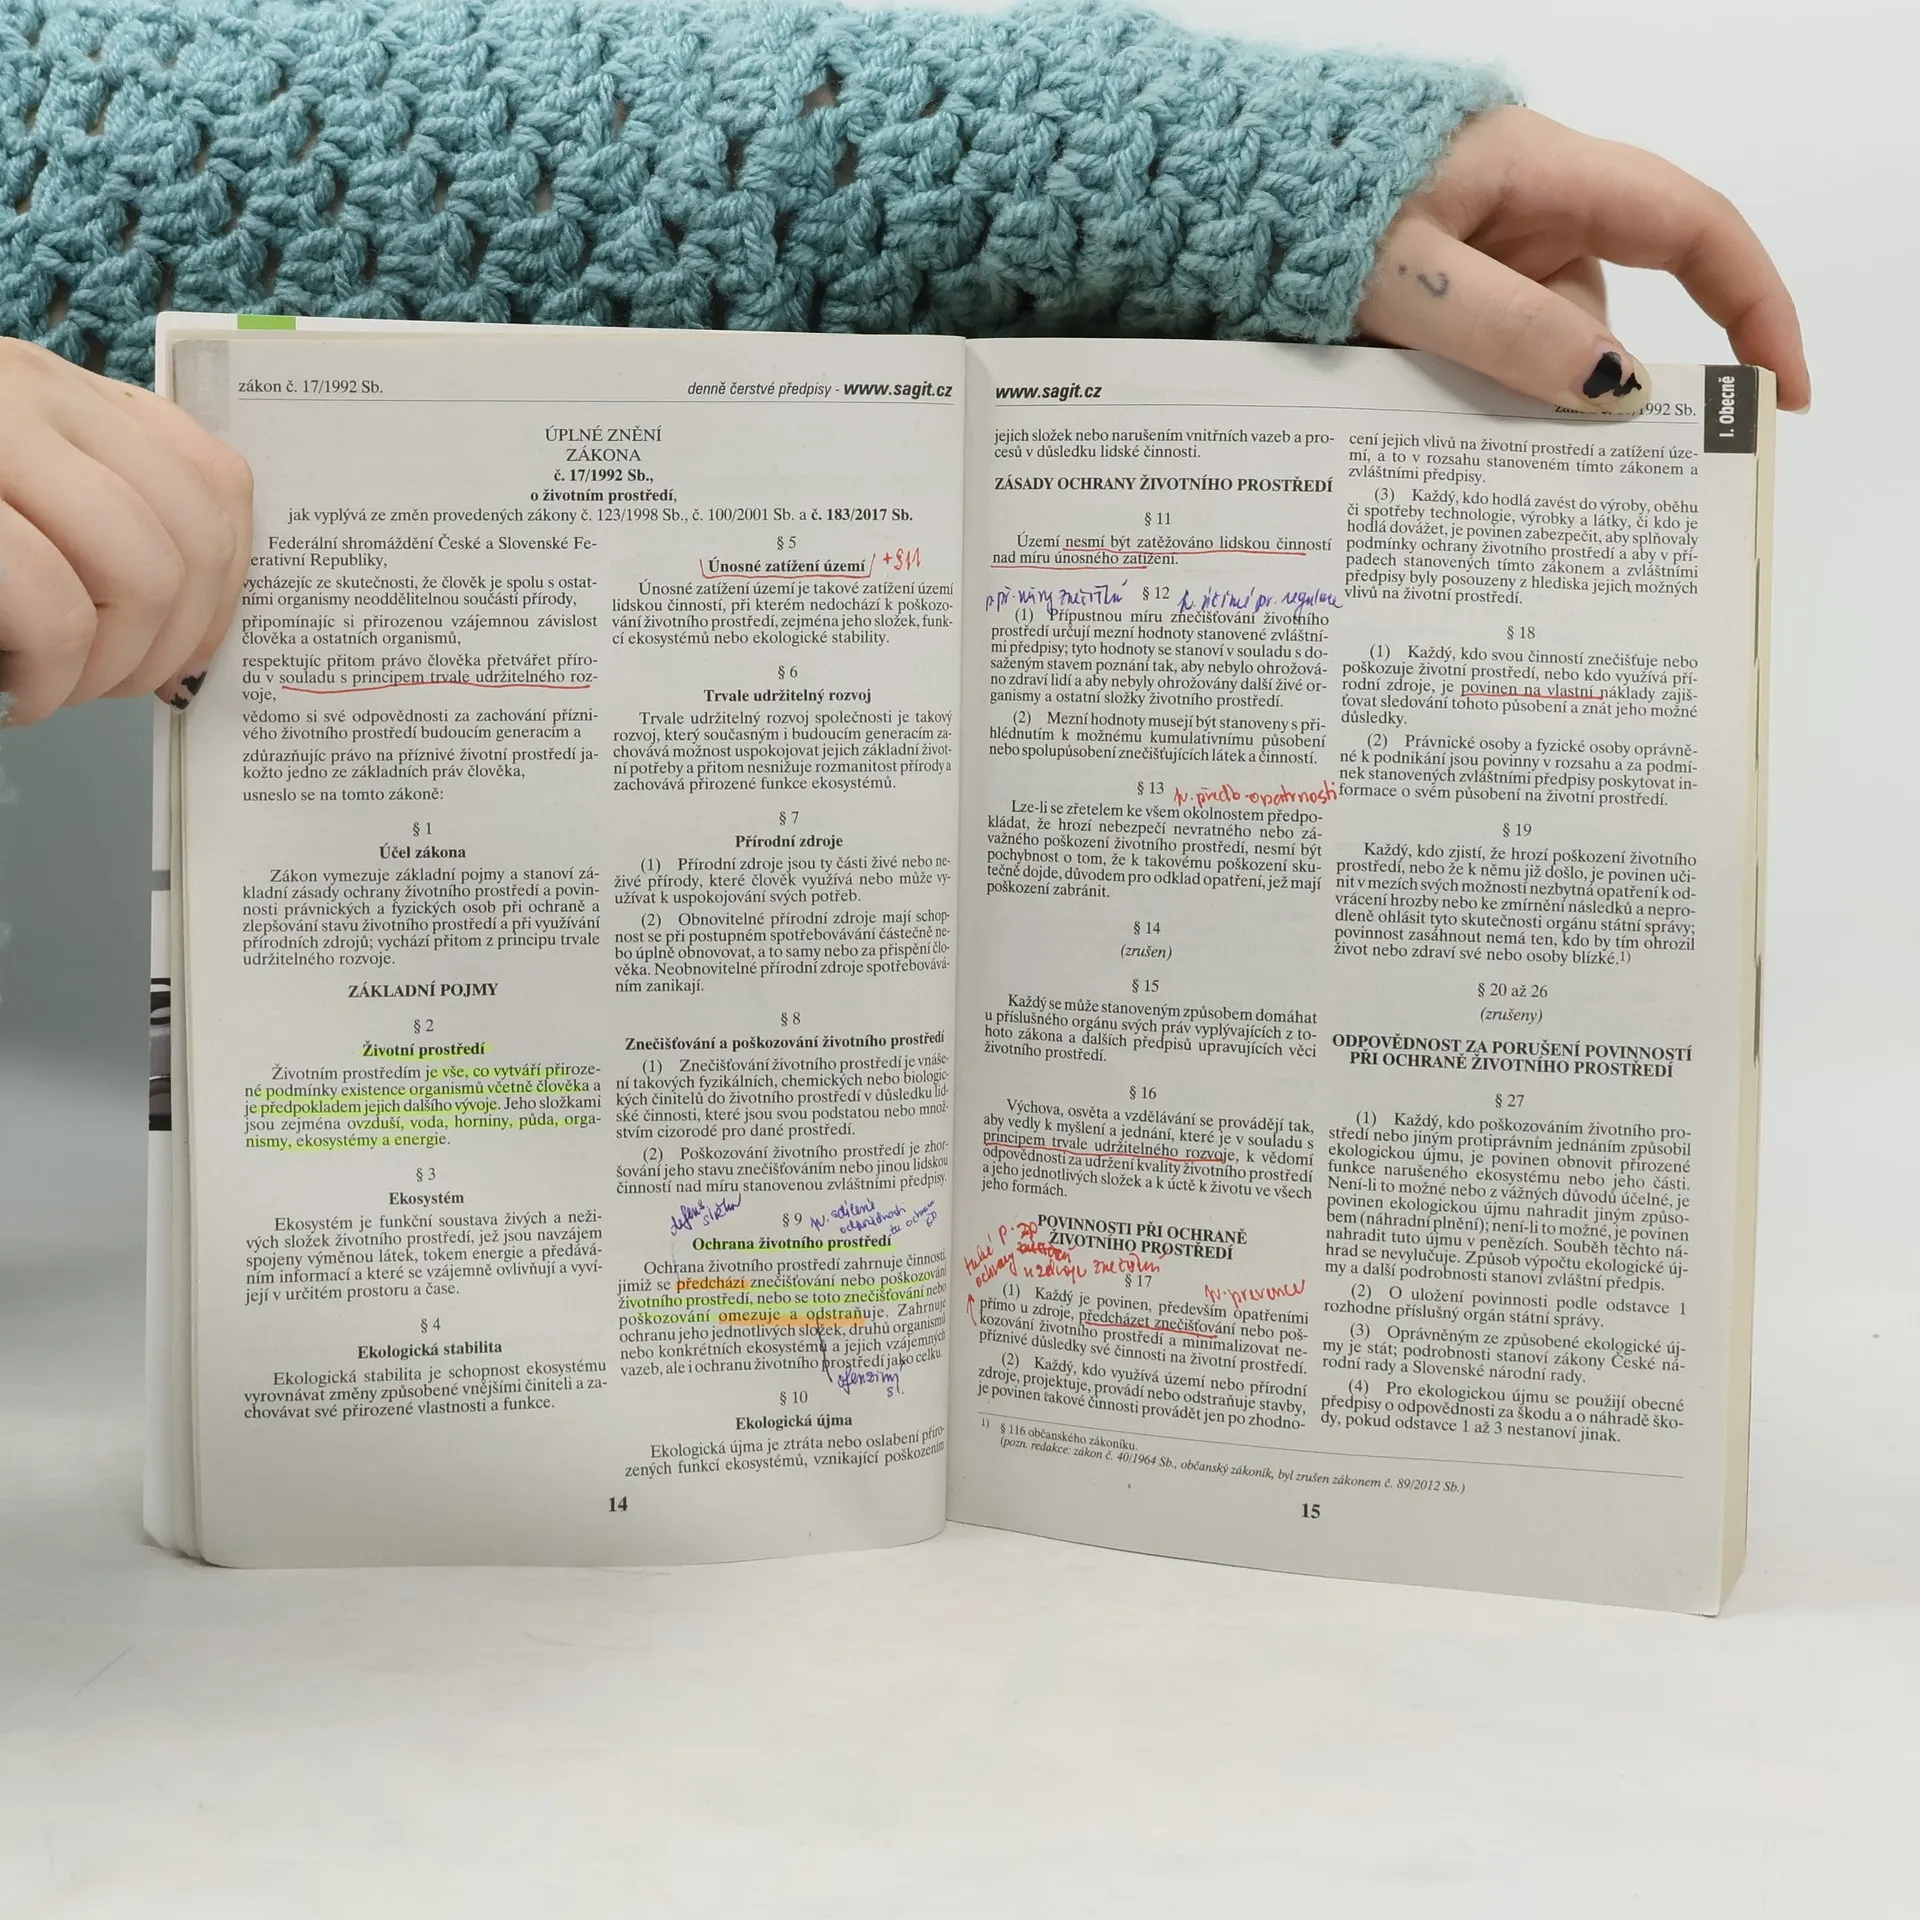 zákon č. 17/1992 Sb.
denně čerstvé předpisy - www.sagit.cz
ÚPLNÉ ZNĚNÍ
ZÁKONA
č. 17/1992 Sb.,
o životním prostředí,
jak vyplývá ze změn provedených zákony č. 123/1998 Sb., č. 100/2001 Sb. a č. 183/2017 Sb.
Federální shromáždění České a Slovenské Fe-
erativní Republiky,
vycházejíc ze skutečnosti, že člověk je spolu s ostat-
ními organismy neoddělitelnou součástí přírody,
připomínajíc si přirozenou vzájemnou závislost
člověka a ostatních organismů,
respektujíc přitom právo člověka přetvářet příro-
du v souladu s principem trvale udržitelného roz-
voje,
vědomo si své odpovědnosti za zachování přízni-
vého životního prostředí budoucím generacím a
zdůrazňujíc právo na příznivé životní prostředí ja-
kožto jedno ze základních práv člověka,
usneslo se na tomto zákoně:
§ 1
Účel zákona
Zákon vymezuje základní pojmy a stanoví zá-
kladní zásady ochrany životního prostředí a povin-
nosti právnických a fyzických osob při ochraně a
zlepšování stavu životního prostředí a při využívání
přírodních zdrojů; vychází přitom z principu trvale
udržitelného rozvoje.
ZÁKLADNÍ POJMY
§ 2
Životní prostředí
Životním prostředím je vše, co vytváří přiroze-
né podmínky existence organismů včetně člověka a
je předpokladem jejich dalšího vývoje. Jeho složkami
jsou zejména ovzduší, voda, horniny, půda, orga-
nismy, ekosystémy a energie.
§ 3
Ekosystém
Ekosystém je funkční soustava živých a neži-
vých složek životního prostředí, jež jsou navzájem
spojeny výměnou látek, tokem energie a předává-
ním informací a které se vzájemně ovlivňují a vyví-
její v určitém prostoru a čase.
§ 4
Ekologická stabilita
Ekologická stabilita je schopnost ekosystému
vyrovnávat změny způsobené vnějšími činiteli a za-
chovávat své přirozené vlastnosti a funkce.
§ 5
Únosné zatížení území + § 11
Únosné zatížení území je takové zatížení území
lidskou činností, při kterém nedochází k poškozo-
vání životního prostředí, zejména jeho složek, funk-
cí ekosystémů nebo ekologické stability.
§ 6
Trvale udržitelný rozvoj
Trvale udržitelný rozvoj společnosti je takový
rozvoj, který současným i budoucím generacím za-
chovává možnost uspokojovat jejich základní život-
ní potřeby a přitom nesnižuje rozmanitost přírody a
zachovává přirozené funkce ekosystémů.
§ 7
Přírodní zdroje
(1) Přírodní zdroje jsou ty části živé nebo ne-
živé přírody, které člověk využívá nebo může vy-
užívat k uspokojování svých potřeb.
(2) Obnovitelné přírodní zdroje mají schop-
nost se při postupném spotřebovávání částečně ne-
bo úplně obnovovat, a to samy nebo za přispění člo-
věka. Neobnovitelné přírodní zdroje spotřebovává-
ním zanikají.
§ 8
Znečišťování a poškozování životního prostředí
(1) Znečišťování životního prostředí je vnáše-
ní takových fyzikálních, chemických nebo biologic-
kých činitelů do životního prostředí v důsledku lid-
ské činnosti, které jsou svou podstatou nebo množ-
stvím cizorodé pro dané prostředí.
(2) Poškozování životního prostředí je zhor-
šování jeho stavu znečišťováním nebo jinou lidskou
činností nad míru stanovenou zvláštními předpisy.
§ 9 p. sdílené
odpovědnosti
za ochranu
ŽP
Ochrana životního prostředí
Ochrana životního prostředí zahrnuje činnosti,
jimiž se předchází znečišťování nebo poškozování
životního prostředí, nebo se toto znečišťování nebo
poškozování omezuje a odstraňuje. Zahrnuje
ochranu jeho jednotlivých složek, druhů organismů
nebo konkrétních ekosystémů a jejich vzájemných
vazeb, ale i ochranu životního prostředí jako celku.
§ 10
Ekologická újma
Ekologická újma je ztráta nebo oslabení přiro-
zených funkcí ekosystémů, vznikající poškozením
14
www.sagit.cz
1992 Sb.
I. Obecně
jejich složek nebo narušením vnitřních vazeb a pro-
cesů v důsledku lidské činnosti.
ZÁSADY OCHRANY ŽIVOTNÍHO PROSTŘEDÍ
§ 11
Území nesmí být zatěžováno lidskou činností
nad míru únosného zatížení.
§ 12
(1) Přípustnou míru znečišťování životního
prostředí určují mezní hodnoty stanovené zvláštní-
mi předpisy; tyto hodnoty se stanoví v souladu s do-
saženým stavem poznání tak, aby nebylo ohrožová-
no zdraví lidí a aby nebyly ohrožovány další živé or-
ganismy a ostatní složky životního prostředí.
(2) Mezní hodnoty musejí být stanoveny s při-
hlédnutím k možnému kumulativnímu působení
nebo spolupůsobení znečišťujících látek a činností.
§ 13 p. předb. opatrnosti
Lze-li se zřetelem ke všem okolnostem předpo-
kládat, že hrozí nebezpečí nevratného nebo zá-
važného poškození životního prostředí, nesmí být
pochybnost o tom, že k takovému poškození sku-
tečně dojde, důvodem pro odklad opatření, jež mají
poškození zabránit.
§ 14
(zrušen)
§ 15
Každý se může stanoveným způsobem domáhat
u příslušného orgánu svých práv vyplývajících z to-
hoto zákona a dalších předpisů upravujících věci
životního prostředí.
§ 16
Výchova, osvěta a vzdělávání se provádějí tak,
aby vedly k myšlení a jednání, které je v souladu s
principem trvale udržitelného rozvoje, k vědomí
odpovědnosti za udržení kvality životního prostředí
a jeho jednotlivých složek a k úctě k životu ve všech
jeho formách.
POVINNOSTI PŘI OCHRANĚ
ŽIVOTNÍHO PROSTŘEDÍ
u zdroje znečištění
§ 17 p. prevence
(1) Každý je povinen, především opatřeními
přímo u zdroje, předcházet znečišťování nebo poš-
kozování životního prostředí a minimalizovat ne-
příznivé důsledky své činnosti na životní prostředí.
(2) Každý, kdo využívá území nebo přírodní
zdroje, projektuje, provádí nebo odstraňuje stavby,
je povinen takové činnosti provádět jen po zhodno-
cení jejich vlivů na životní prostředí a zatížení úze-
mí, a to v rozsahu stanoveném tímto zákonem a
zvláštními předpisy.
(3) Každý, kdo hodlá zavést do výroby, oběhu
či spotřeby technologie, výrobky a látky, či kdo je
hodlá dovážet, je povinen zabezpečit, aby splňovaly
podmínky ochrany životního prostředí a aby v pří-
padech stanovených tímto zákonem a zvláštními
předpisy byly posouzeny z hlediska jejich možných
vlivů na životní prostředí.
§ 18
(1) Každý, kdo svou činností znečišťuje nebo
poškozuje životní prostředí, nebo kdo využívá pří-
rodní zdroje, je povinen na vlastní náklady zajiš-
ťovat sledování tohoto působení a znát jeho možné
důsledky.
(2) Právnické osoby a fyzické osoby oprávně-
né k podnikání jsou povinny v rozsahu a za podmí-
nek stanovených zvláštními předpisy poskytovat in-
formace o svém působení na životní prostředí.
§ 19
Každý, kdo zjistí, že hrozí poškození životního
prostředí, nebo že k němu již došlo, je povinen uči-
nit v mezích svých možností nezbytná opatření k od-
vrácení hrozby nebo ke zmírnění následků a nepro-
dleně ohlásit tyto skutečnosti orgánu státní správy;
povinnost zasáhnout nemá ten, kdo by tím ohrozil
život nebo zdraví své nebo osoby blízké.1)
§ 20 až 26
(zrušeny)
ODPOVĚDNOST ZA PORUŠENÍ POVINNOSTÍ
PŘI OCHRANĚ ŽIVOTNÍHO PROSTŘEDÍ
§ 27
(1) Každý, kdo poškozováním životního pro-
středí nebo jiným protiprávním jednáním způsobil
ekologickou újmu, je povinen obnovit přirozené
funkce narušeného ekosystému nebo jeho části.
Není-li to možné nebo z vážných důvodů účelné, je
povinen ekologickou újmu nahradit jiným způso-
bem (náhradní plnění); není-li to možné, je povinen
nahradit tuto újmu v penězích. Souběh těchto ná-
hrad se nevylučuje. Způsob výpočtu ekologické új-
my a další podrobnosti stanoví zvláštní předpis.
(2) O uložení povinností podle odstavce 1
rozhodne příslušný orgán státní správy.
(3) Oprávněným ze způsobené ekologické új-
my je stát; podrobnosti stanoví zákony České ná-
rodní rady a Slovenské národní rady.
(4) Pro ekologickou újmu se použijí obecné
předpisy o odpovědnosti za škodu a o náhradě ško-
dy, pokud odstavce 1 až 3 nestanoví jinak.
1) § 116 občanského zákoníku.
(pozn. redakce: zákon č. 40/1964 Sb., občanský zákoník, byl zrušen zákonem č. 89/2012 Sb.)
15